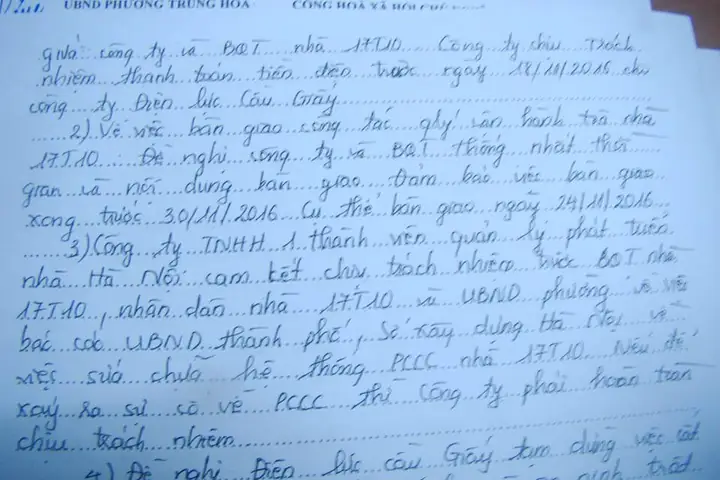 UBND PHƯỜNG TRUNG HÒA CỘNG HÒA XÃ HỘI CHỦ
giữa công ty và BQT nhà 17T10. Công ty chịu trách
nhiệm thanh toán tiền điện trước ngày 18/11/2016 cho
công ty Điện lực Cầu Giấy
2) Về việc bàn giao công tác qlý vận hành toà nhà
17T10. Đề nghị công ty và BQT thống nhất thời
gian và nội dung bàn giao. Đảm bảo việc bàn giao
xong trước 30/11/2016. Cụ thể bàn giao ngày 24/11/2016
3) Công ty TNHH 1 thành viên quản lý phát triển
nhà Hà Nội cam kết chịu trách nhiệm trước BQT nhà
17T10, nhân dân nhà 17T10 và UBND phường về việc
báo cáo UBND thành phố, Sở xây dựng Hà Nội về
việc sửa chữa hệ thống PCCC nhà 17T10. Nếu để
xảy ra sự cố về PCCC thì Công ty phải hoàn toàn
chịu trách nhiệm
4) Đề nghị Điện lực cầu Giấy tạm dừng việc cắt